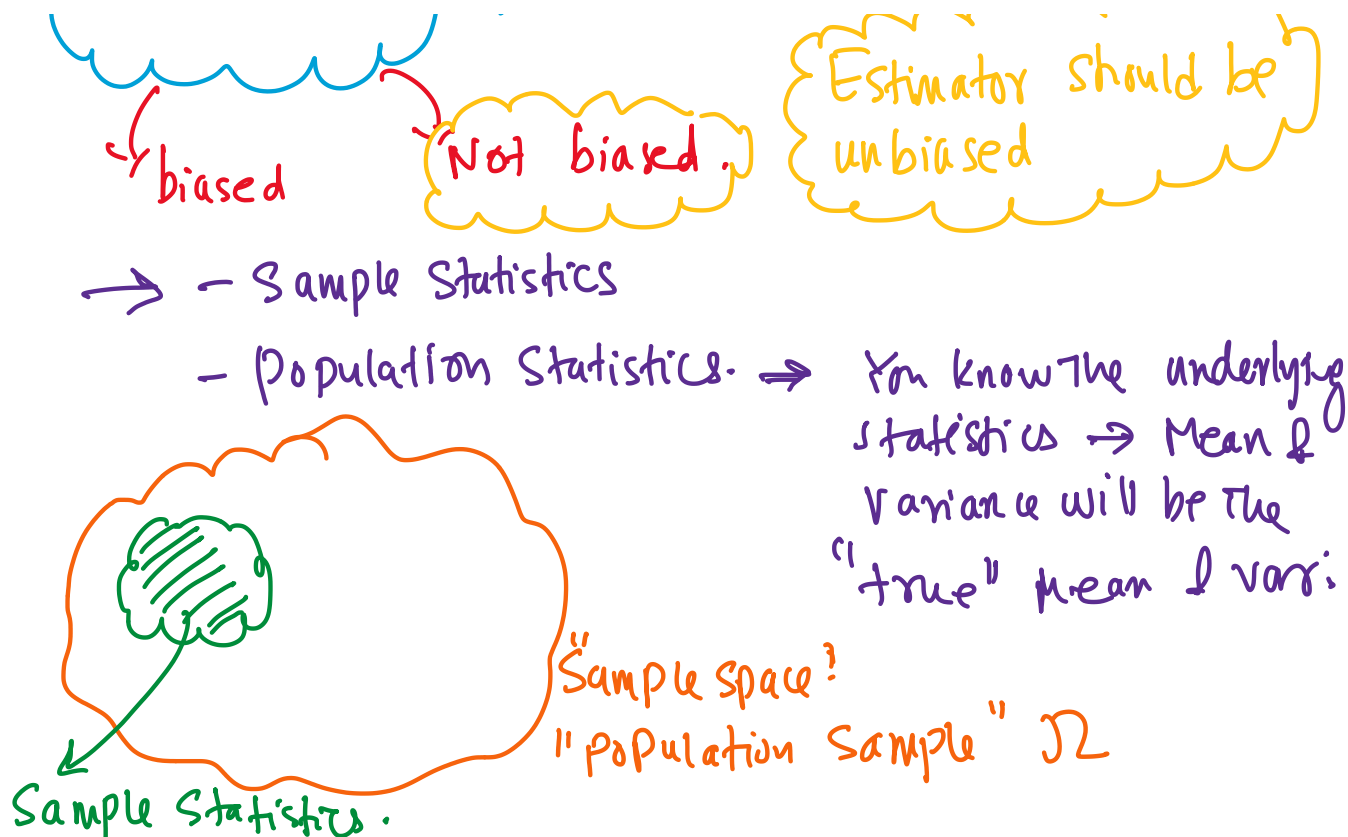 Estimator should be
unbiased
Not biased.
biased
→ - Sample Statistics
- Population Statistics. → You know the underlying
statistics → Mean &
variance will be the
"true" mean & var.
"Sample space"
"population sample" Ω
Sample Statistics.